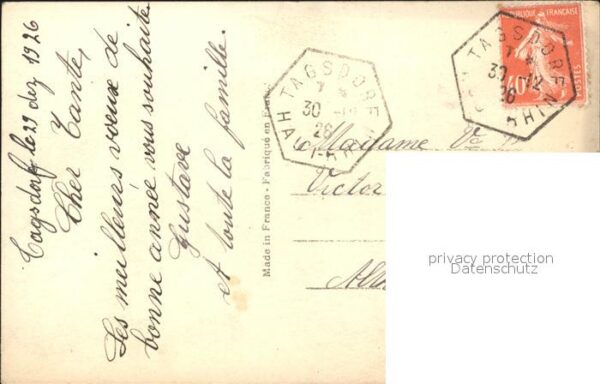 Tagsdorf, le 29 dez 1926
Cher Tante,
Les meilleurs vœux de
bonne année vous souhaite
Gustave
et toute la famille.
Made in France - Fabriqué en France
TAGSDORF
7 *
30 -12
26
HAUT-RHIN
TAGSDORF
7 *
30 -12
26
RHIN
RÉPUBLIQUE FRANÇAISE
40c
POSTES
Madame Vve
Victor
privacy protection
Datenschutz